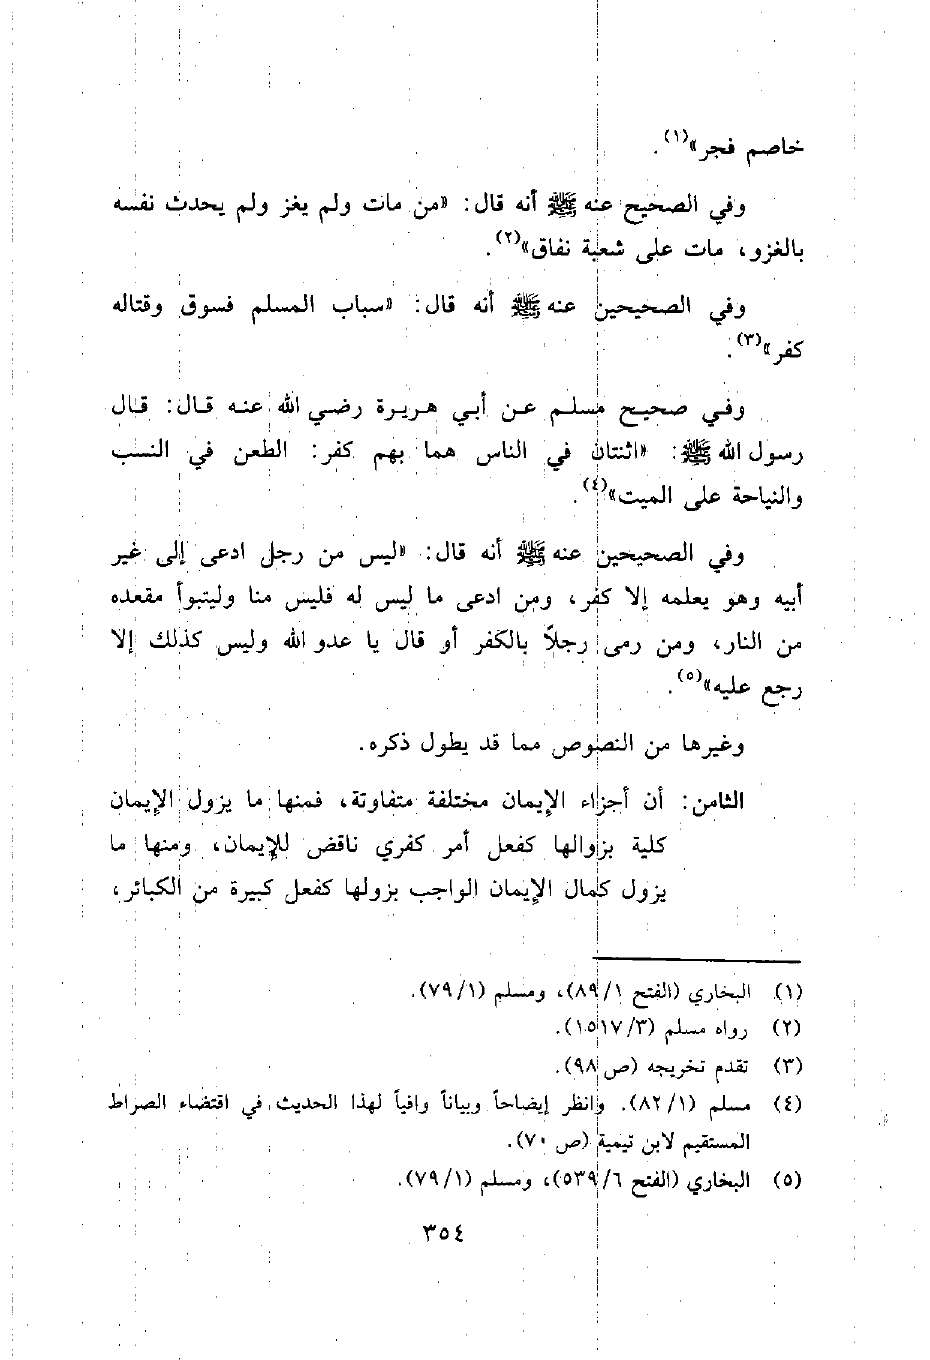 خاصم فجر»(١).
وفي الصحيح عنه ﷺ أنه قال: «من مات ولم يغز ولم يحدث نفسه
بالغزو، مات على شعبة نفاق»(٢).
وفي الصحيحين عنه ﷺ أنه قال: «سباب المسلم فسوق وقتاله
كفر»(٣).
وفي صحيح مسلم عن أبي هريرة رضي الله عنه قال: قال
رسول الله ﷺ: «اثنتان في الناس هما بهم كفر: الطعن في النسب
والنياحة على الميت»(٤).
وفي الصحيحين عنه ﷺ أنه قال: «ليس من رجل ادعى إلى غير
أبيه وهو يعلمه إلا كفر، ومن ادعى ما ليس له فليس منا وليتبوأ مقعده
من النار، ومن رمى رجلاً بالكفر أو قال يا عدو الله وليس كذلك إلا
رجع عليه»(٥).
وغيرها من النصوص مما قد يطول ذكره.
الثامن: أن أجزاء الإيمان مختلفة متفاوتة، فمنها ما يزول الإيمان
كلية بزوالها كفعل أمر كفري ناقض للإيمان، ومنها ما
يزول كمال الإيمان الواجب بزولها كفعل كبيرة من الكبائر،
(١) البخاري (الفتح ٨٩/١)، ومسلم (٧٩/١).
(٢) رواه مسلم (١٥١٧/٣).
(٣) تقدم تخريجه (ص ٩٨).
(٤) مسلم (٨٢/١). وانظر إيضاحاً وبياناً وافياً لهذا الحديث في اقتضاء الصراط
المستقيم لابن تيمية (ص ٧٠).
(٥) البخاري (الفتح ٥٣٩/٦)، ومسلم (٧٩/١).
٣٥٤